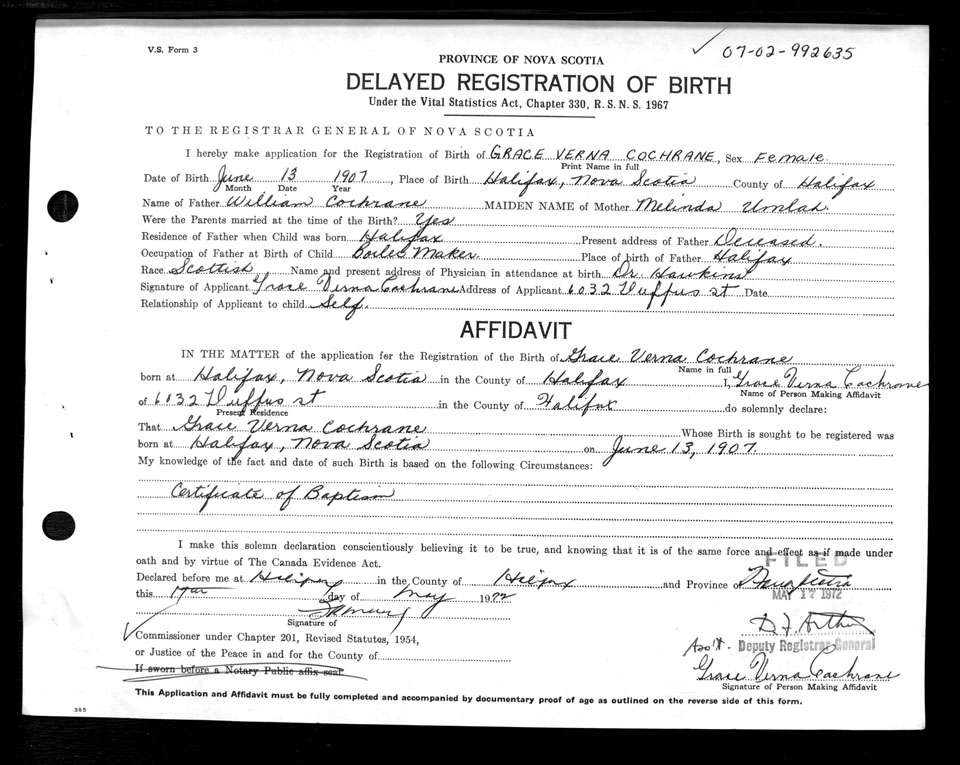 V.S. Form 3
✓ 07-02-992635
PROVINCE OF NOVA SCOTIA
DELAYED REGISTRATION OF BIRTH
Under the Vital Statistics Act, Chapter 330, R.S.N.S. 1967
TO THE REGISTRAR GENERAL OF NOVA SCOTIA
I hereby make application for the Registration of Birth of GRACE VERNA COCHRANE, Sex Female.
Print Name in full
Date of Birth June 13 1907, Place of Birth Halifax, Nova Scotia County of Halifax
Month Date Year
Name of Father William Cochrane MAIDEN NAME of Mother Melinda Umlah.
Were the Parents married at the time of the Birth? Yes
Residence of Father when Child was born Halifax Present address of Father Deceased.
Occupation of Father at Birth of Child Boiler Maker. Place of birth of Father Halifax
Race Scottish, Name and present address of Physician in attendance at birth Dr. Hawkins
Signature of Applicant Grace Verna Cochrane Address of Applicant 6032 Duffus st Date
Relationship of Applicant to child Self.
AFFIDAVIT
IN THE MATTER of the application for the Registration of the Birth of Grace Verna Cochrane
Name in full
born at Halifax, Nova Scotia in the County of Halifax I, Grace Verna Cochrane
Name of Person Making Affidavit
of 6032 Duffus st in the County of Halifax do solemnly declare:
Present Residence
That Grace Verna Cochrane Whose Birth is sought to be registered was
born at Halifax, Nova Scotia on June 13, 1907.
My knowledge of the fact and date of such Birth is based on the following Circumstances:
Certificate of Baptism
I make this solemn declaration conscientiously believing it to be true, and knowing that it is of the same force and effect as if made under
oath and by virtue of The Canada Evidence Act.
FILED
Declared before me at Halifax in the County of Halifax and Province of Nova Scotia
this 17th day of May 1972
MAY 17 1972
Signature of
Commissioner under Chapter 201, Revised Statutes, 1954,
Ass't. Deputy Registrar General
or Justice of the Peace in and for the County of
Grace Verna Cochrane
If sworn before a Notary Public affix seal.
Signature of Person Making Affidavit
This Application and Affidavit must be fully completed and accompanied by documentary proof of age as outlined on the reverse side of this form.
385